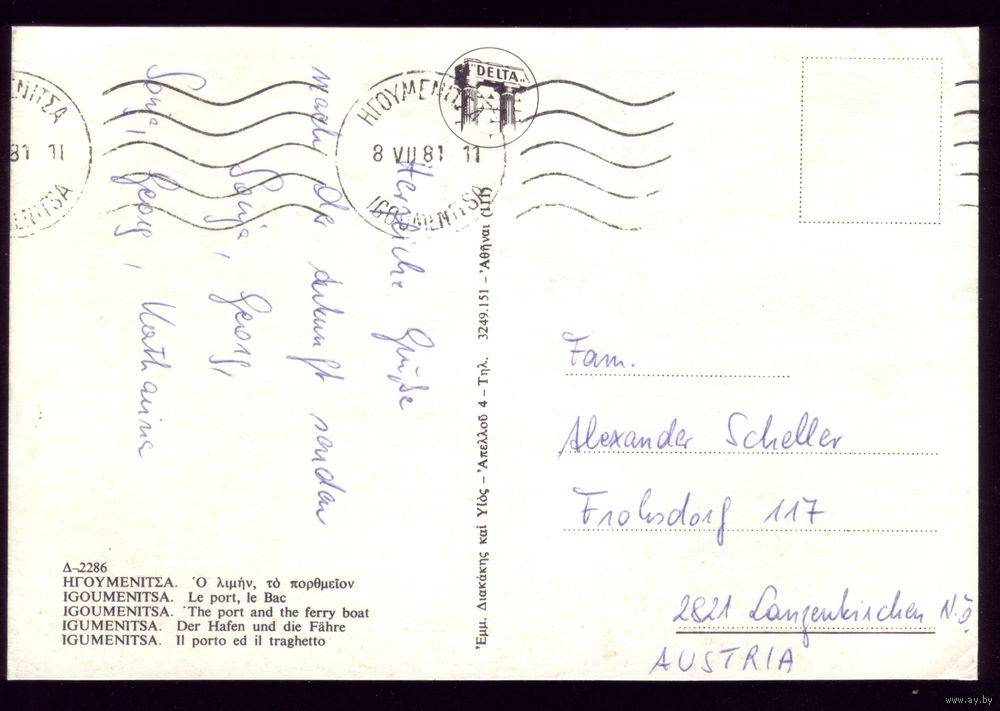 ΝΙΤΣΑ
81 11
ENITSA
ΗΓΟΥΜΕΝΙΤΣΑ
8 VII 81 11
IGOUMENITSA
"DELTA"
Herzliche Grüße
nach der Ankunft senden
Sonja, Georg,
Sonja, Georg, Katharina
Δ-2286
ΗΓΟΥΜΕΝΙΤΣΑ. Ὁ λιμήν, τὸ πορθμεῖον
IGOUMENITSA. Le port, le Bac
IGOUMENITSA. The port and the ferry boat
IGUMENITSA. Der Hafen und die Fähre
IGUMENITSA. Il porto ed il traghetto
Ἐμμ. Διακάκης καὶ Υἱὸς – Ἀπελλοῦ 4 – Τηλ. 3249.151 – Ἀθῆναι (111)
Fam.
Alexander Scheller
Frohsdorf 117
2821 Lanzenkirchen N.Ö
AUSTRIA
www.ay.by